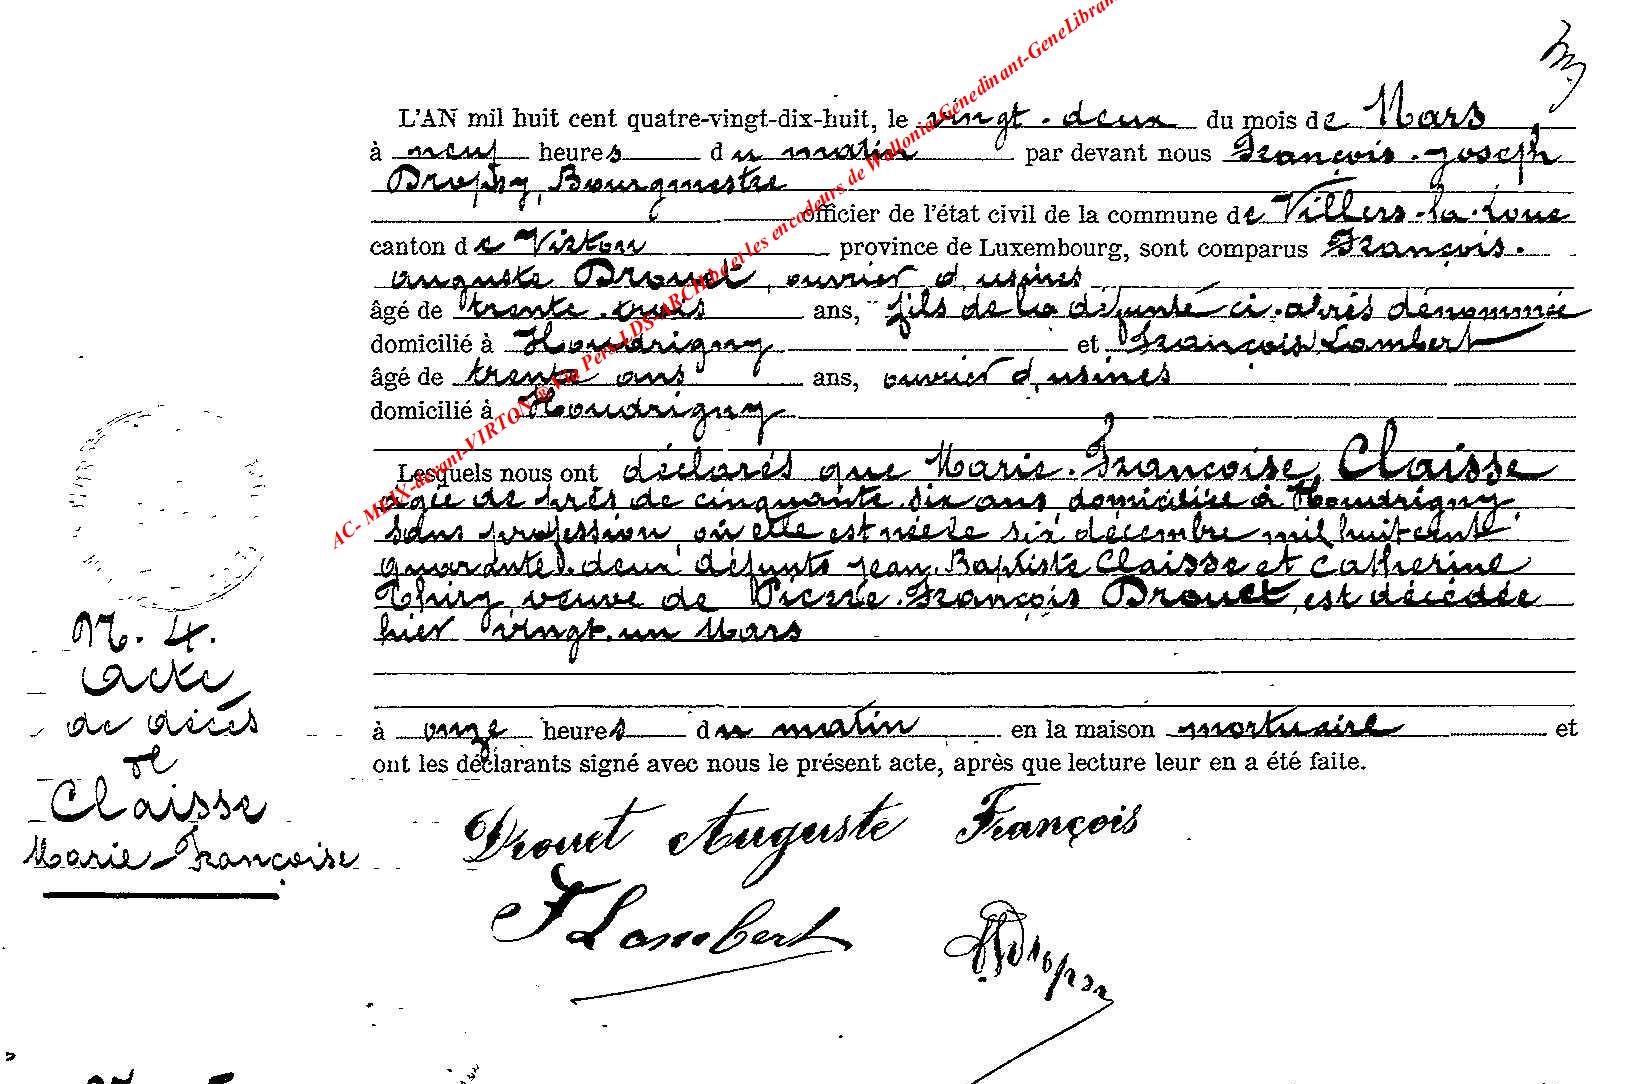 L'AN mil huit cent quatre-vingt-dix-huit, le vingt-deux du mois de Mars
à neuf heures du matin par devant nous François-Joseph
Dropsy, Bourgmestre
officier de l'état civil de la commune de Villers-la-Loue
canton de Virton province de Luxembourg, sont comparus François-
auguste Drouet, ouvrier d'usines
âgé de trente-trois ans, fils de la défunte ci-après dénommée
domicilié à Houdrigny et François Lambert
âgé de trente ans ans, ouvrier d'usines
domicilié à Houdrigny
Lesquels nous ont déclarés que Marie-Françoise Claisse
agée de près de cinquante-six ans, domiciliée à Houdrigny
sans profession, où elle est née le six décembre mil huit cent
quarante-deux, défunts Jean-Baptiste Claisse et Catherine
Thiry, veuve de Pierre-François Drouet, est décédée
hier vingt-un Mars
à onze heures du matin en la maison mortuaire et
ont les déclarants signé avec nous le présent acte, après que lecture leur en a été faite.
N. 4.
Acte
de décès
de
Claisse
Marie-Françoise
Drouet Auguste François
F Lambert
Dropsy